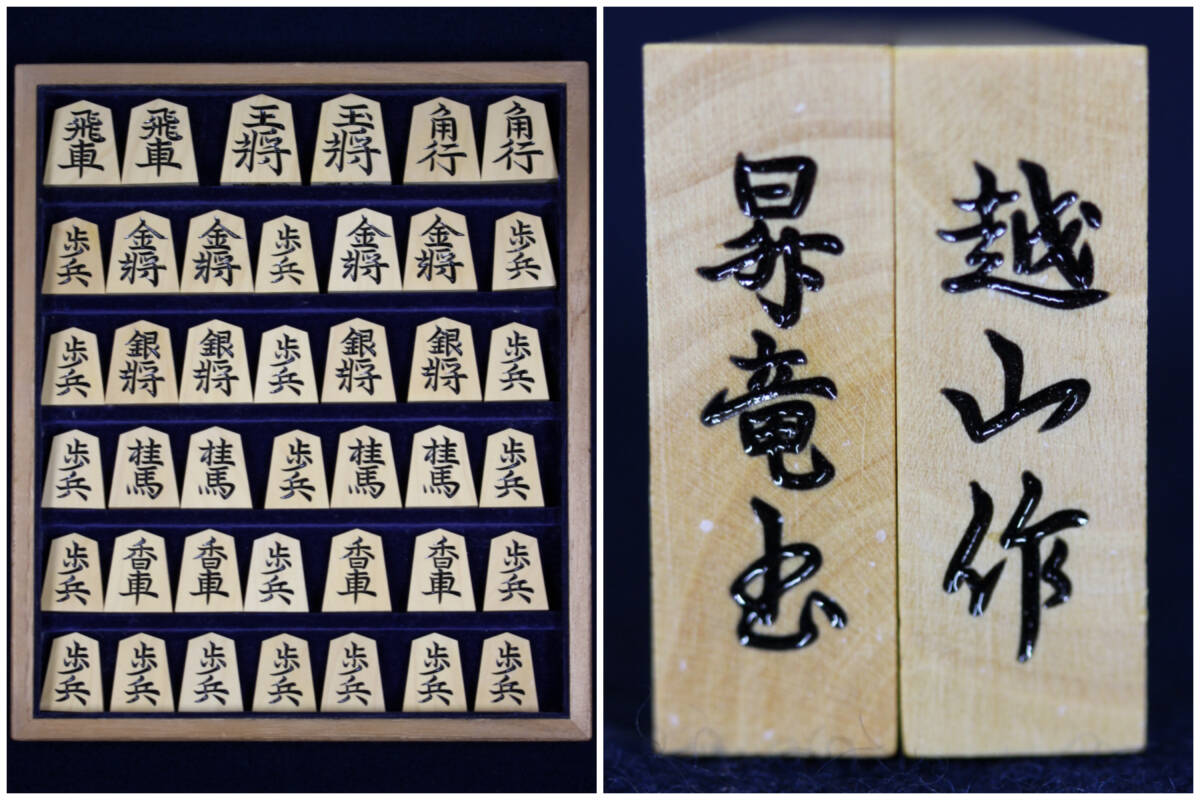 飛車 飛車 王将 玉将 角行 角行
歩兵 金将 金将 歩兵 金将 金将 歩兵
歩兵 銀将 銀将 歩兵 銀将 銀将 歩兵
歩兵 桂馬 桂馬 歩兵 桂馬 桂馬 歩兵
歩兵 香車 香車 歩兵 香車 香車 歩兵
歩兵 歩兵 歩兵 歩兵 歩兵 歩兵 歩兵
越山作
昇竜書